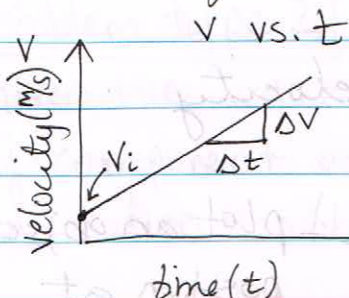 V vs. t
V
velocity (m/s)
Vi
ΔV
Δt
time (t)